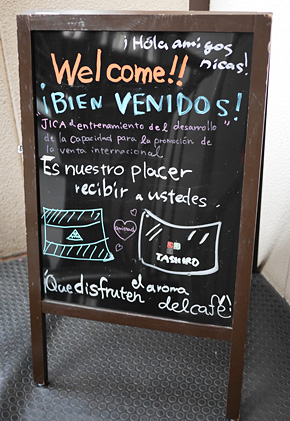 ¡Hola, amigos
nicas!
Welcome!!
¡BIEN VENIDOS!
"JICA el entrenamiento del desarrollo
de la capacidad para la promoción de
la venta internacional"
Es nuestro placer
recibir a ustedes.
amistad
TASHIRO
¡Que disfruten el aroma
del café!